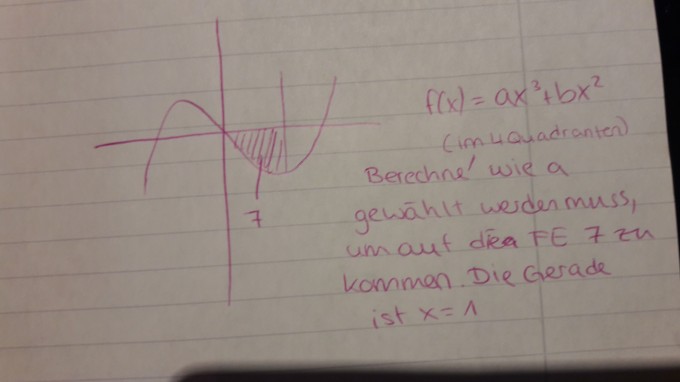 f(x) = ax³+bx²
(im 4 Quadranten)
Berechne' wie a
gewählt werden muss,
um auf die FE 7 zu
kommen. Die Gerade
ist x = 1
7